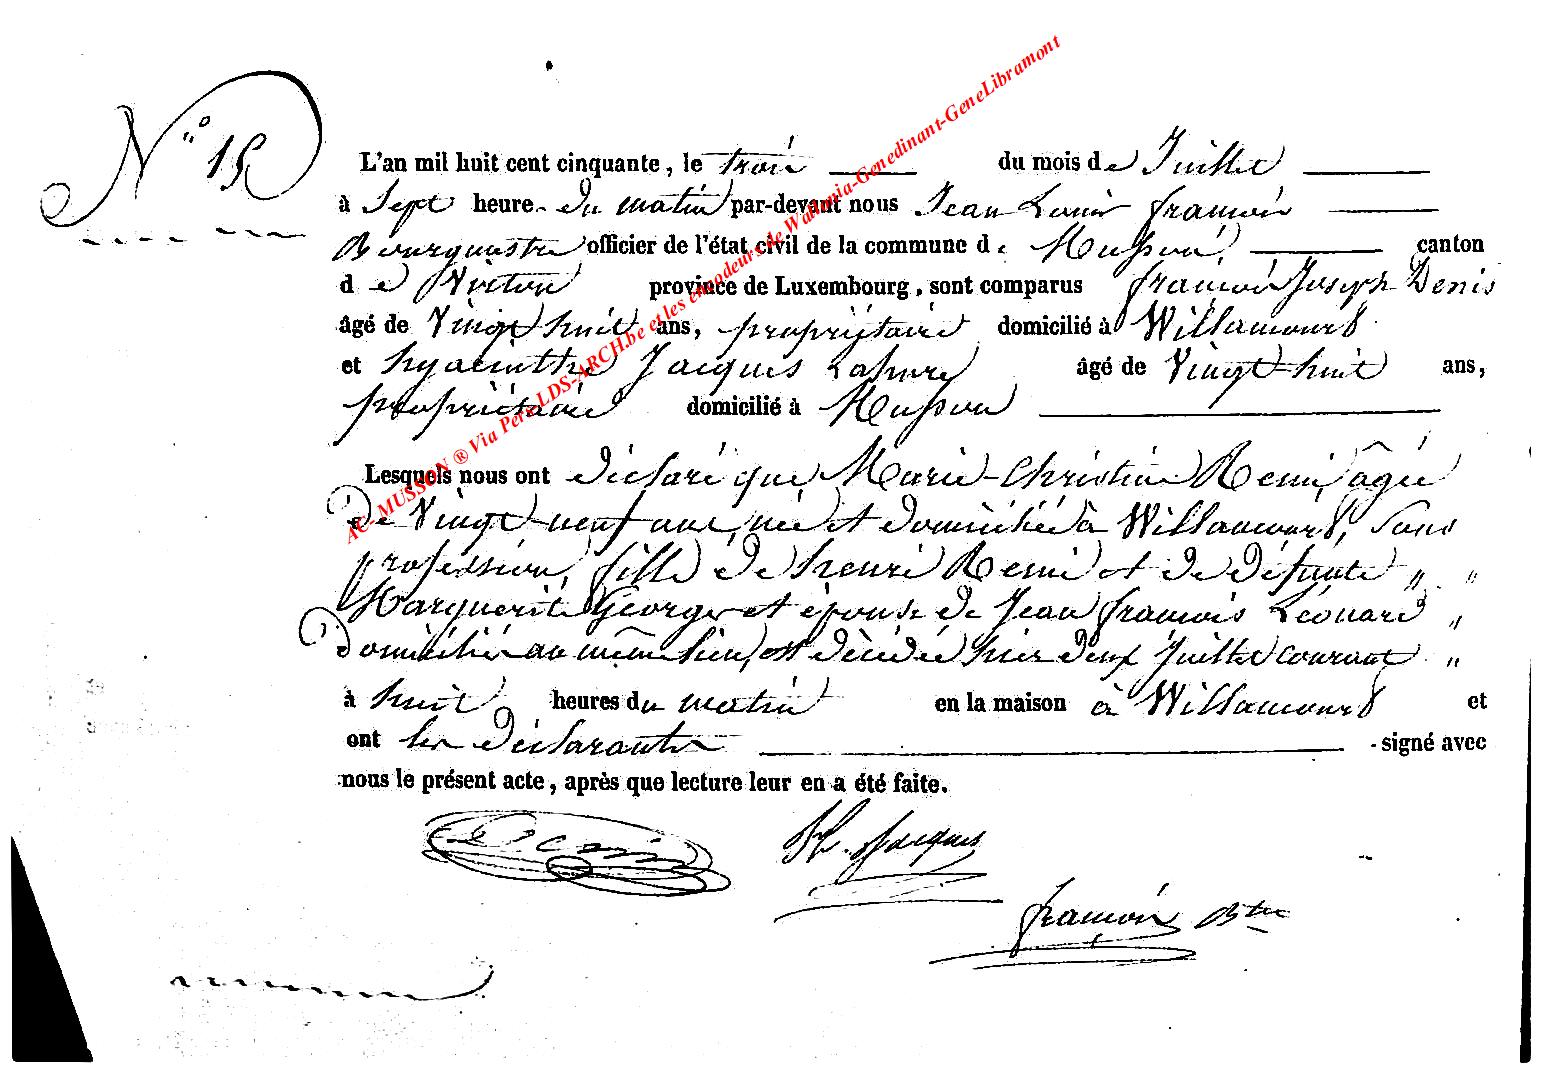 N.ro 15
L'an mil huit cent cinquante, le trois du mois de Juillet
à Sept heure. du matin par-devant nous Jean Louis françois
Bourgmestre officier de l'état civil de la commune de Musson, canton
de Virton province de Luxembourg, sont comparus françois Joseph Denis
âgé de Vingt huit ans, propriétaire domicilié à Willancourt
et hyacinthe Jacques âgé de Vingt-huit ans,
propriétaire domicilié à Musson
Lesquels nous ont déclaré que Marie-Christine Remi, âgée
de Vingt-neuf ans, née et domiciliée à Willancourt, sans
profession, fille de henri Remi et de défunte „ „
Marguerite George et épouse de Jean françois Léonard „
domicilié au même lieu, est décédée hier deux Juillet courant „
à huit heures du matin en la maison à Willancourt et
ont les déclarants signé avec
nous le présent acte, après que lecture leur en a été faite.
Denis
H. Jacques
françois Btre
AC- MUSSON ® Via Pers LDS-ARCH.be et les encodeurs de Wallonia-Genedinant-GeneLibramont